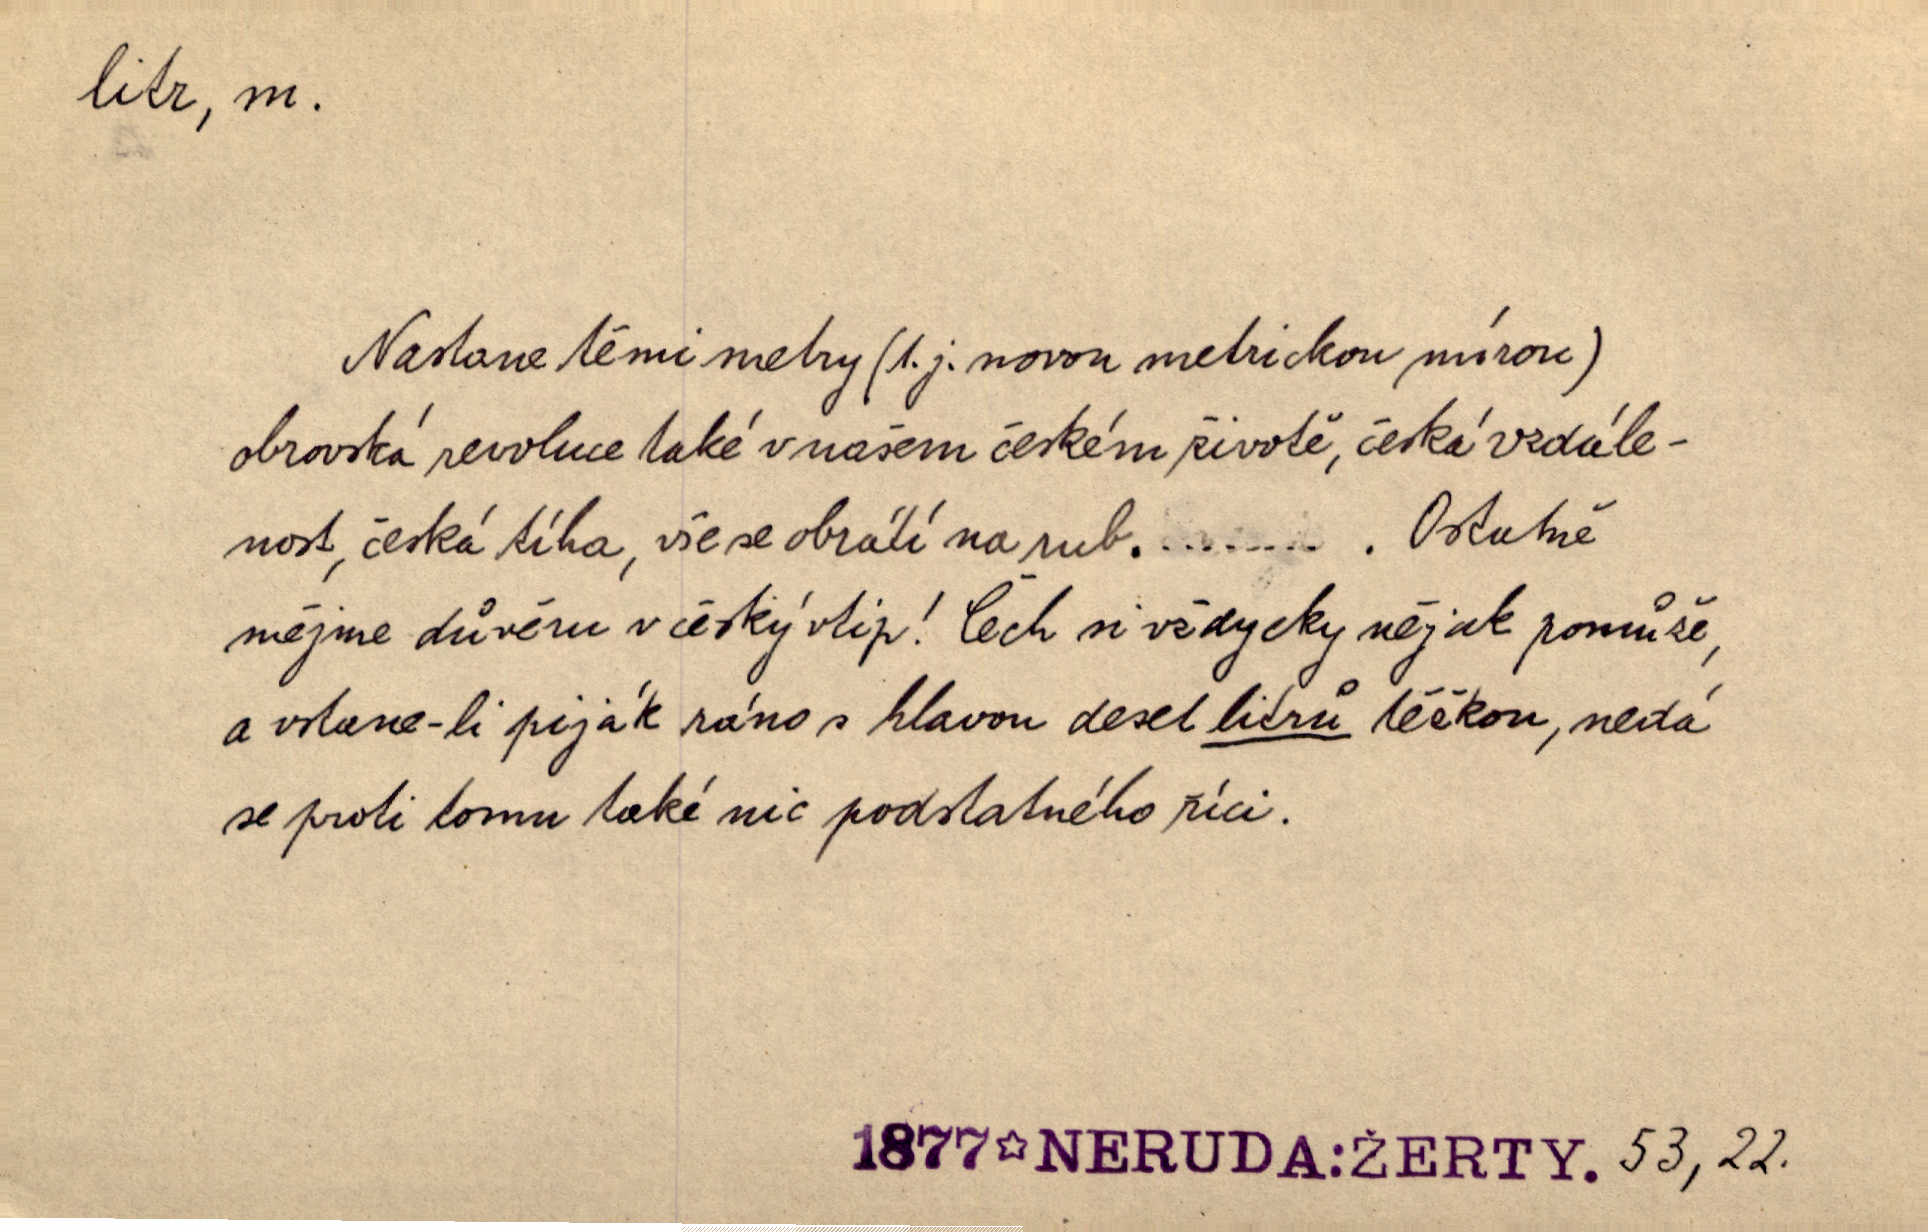 litr, m.
Nastane těmi metry (t. j. novou metrickou mírou)
obrovská revoluce také v našem českém životě, česká vzdále-
nost, česká tíha, vše se obrátí na rub. ........ . Ostatně
mějme důvěru v český vtip! Čech si vždycky nějak pomůže,
a vstane-li piják ráno s hlavou deset litrů těžkou, nedá
se proti tomu také nic podstatného říci.
1877☆NERUDA:ŽERTY. 53, 22.